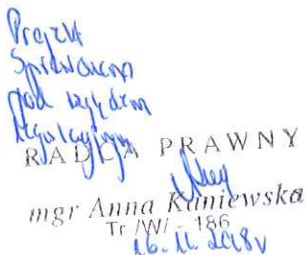 Projekt
Sprawdzono
pod względem
legislacyjnym
RADCA PRAWNY
mgr Anna Kaniewska
Tr /W/ - 186
16.11.2018r